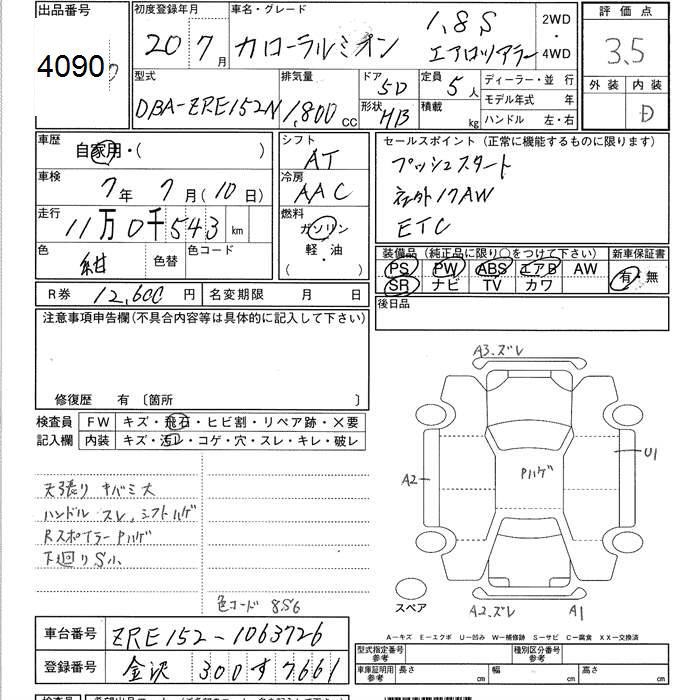 出品番号 初度登録年月 車名・グレード 評価点
4090 20 7月 カローラルミオン 1.8S エアロツアラー 2WD・4WD 3.5
型式 排気量 ドア 5D 定員 5人 ディーラー・並 行 外装 内装
DBA-ZRE152N 1,800cc 形状 HB 積載 kg モデル年式 年 D
ハンドル 左・右
車歴 自家用・( ) シフト AT セールスポイント (正常に機能するものに限ります)
車検 7年 7月 (10日) 冷房 AAC プッシュスタート
走行 11万0千543km 燃料 ガソリン 軽・油 ( ・ ) 社外17AW
色 紺 色替 色コード ETC
装備品 (純正品に限り○をつけて下さい) 新車保証書
PS PW ABS エアB AW 有・無
SR ナビ TV カワ
R券 12,600円 名変期限 月 日 後日品
注意事項申告欄(不具合内容等は具体的に記入して下さい)
修復歴 有 〔箇所 〕
検査員 FW キズ・飛石・ヒビ割・リペア跡・×要
記入欄 内装 キズ・汚レ・コゲ・穴・スレ・キレ・破レ
天張り キバミ大
ハンドル スレ、シフトハゲ
Rスポイラー Pハゲ
下廻りS小
色コード 8S6
A3.ズレ
A2
Pハゲ
U1
スペア
A2.ズレ
A1
A-キズ E-エクボ U-凹み W-補修跡 S-サビ C-腐食 XX-交換済
車台番号 ZRE152-1063726
登録番号 金沢 300す7661
型式指定番号 参考 種別区分番号 参考
車庫証明用 参考 長さ cm 幅 cm 高さ cm